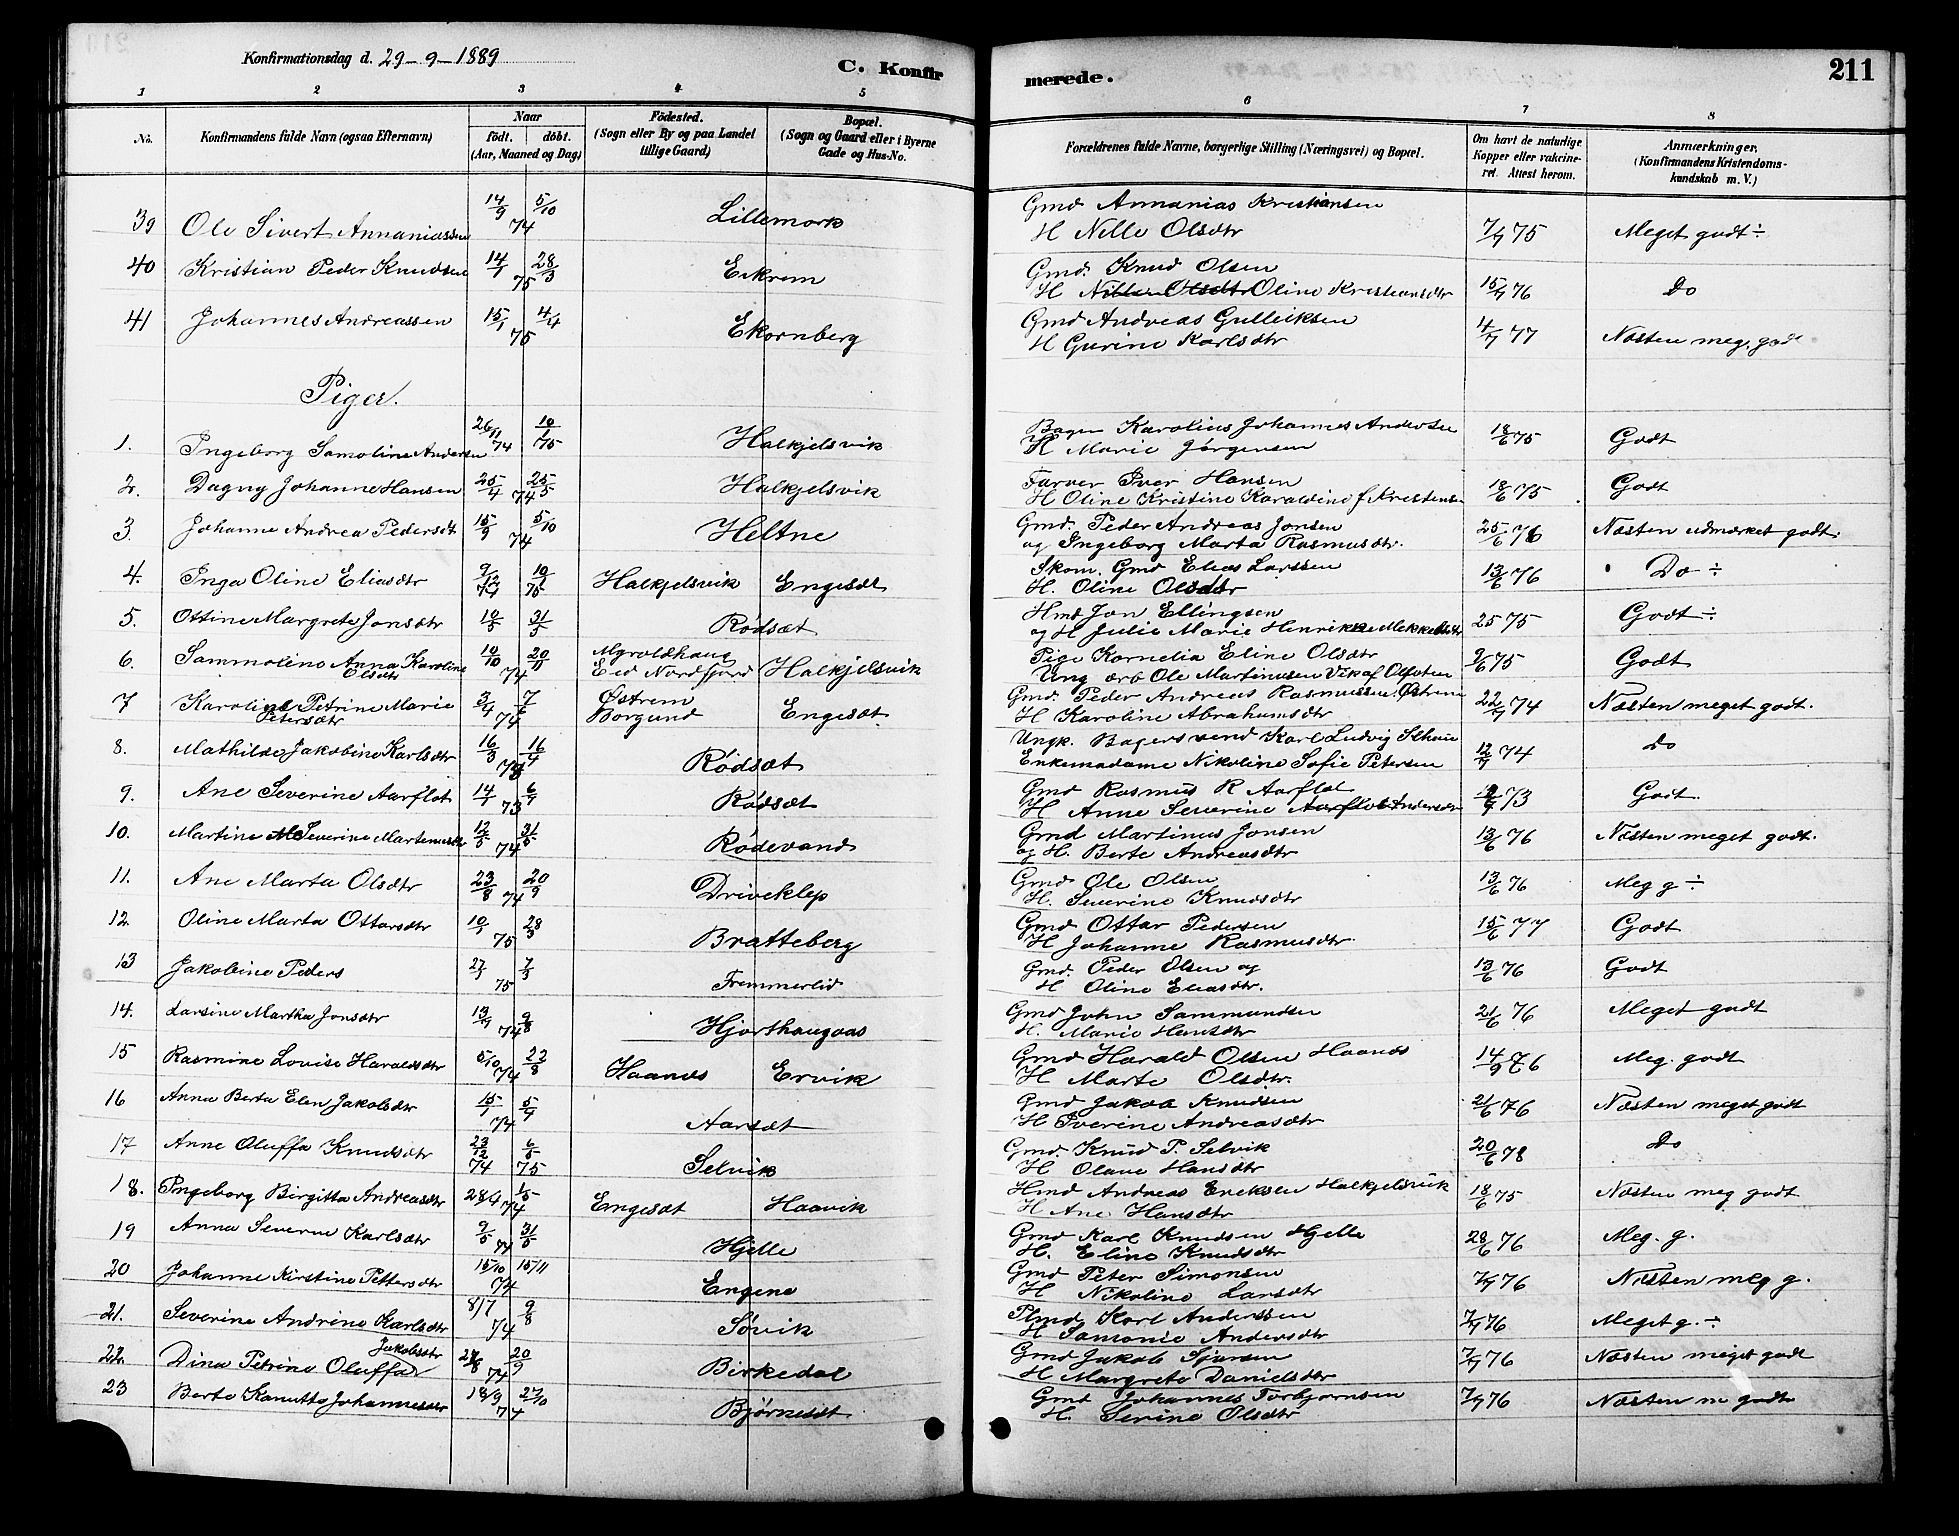 Konfirmationsdag d. 29-9-1889
C. Konfir
merede.
211
1 2 3 4 5 6 7 8
No.
Konfirmandens fulde Navn (ogsaa Efternavn)
Naar
födt. döbt.
(Aar, Maaned og Dag)
Födested.
(Sogn eller By og paa Landet
tillige Gaard)
Bopæl.
(Sogn og Gaard eller i Byerne
Gade og Hus-No.
Forældrenes fulde Navne, borgerlige Stilling (Næringsvei) og Bopæl.
Om havt de naturlige
Kopper eller vakcine-
ret. Attest herom.
Anmærkninger,
(Konfirmandens Kristendoms-
kundskab m. V.)
39 Ole Sivert Annaniassen 14/9 5/10 74 Lillemork Gmd Annanias Kristiansen
H Nille Olsdtr 7/7 75 Meget godt ÷
40 Kristian Peder Knudsen 14/1 28/3 75 Eikrem Gmd. Knud Olsen
H Nille Olsdtr Oline Kristiansdtr 15/7 76 Do
41 Johannes Andreassen 15/1 4/4 75 Ekornberg Gmd Andreas Gulleiksen
H Gurine Karlsdtr 4/7 77 Næsten meg. godt
Piger.
1. Ingeborg Samoline Andersen 26/11 74 10/1 75 Halkjelsvik Bager Karolius Johannes Andersen
H Marie Jørgensen 18/6 75 Godt
2. Dagny Johanne Hansen 25/4 25/5 74 Halkjelsvik Farver Iver Hansen
H Oline Kristine Karaldine f. Kristensen 18/6 75 Godt
3. Johanne Andrea Pedersdt 15/9 5/10 74 Heltne Gmd. Peder Andreas Jonsen
og Ingeborg Marta Rasmusdtr. 25/6 76 Næsten udmærket godt.
4. Inga Oline Eliasdtr 9/12 74 10/1 75 Halkjelsvik Engesæt Skom. Gmd Elias Larssen
H. Oline Olsdtr 13/6 76 Do ÷
5. Ottine Margrete Jonsdtr 10/5 31/5 Rødsæt Hmd Jon Ellingsen
og H Julie Marie Henrikke Mekkelsdtr 25 75 Godt ÷
6. Sammoline Anna Karoline
Olsdtr 10/10 20/11 74 Myroldhaug
Eid Nordfjord Halkjelsvik Pige Kornelia Eline Olsdtr
Ung. arb Ole Martinusen Vik af Olfoten 9/6 75 Godt
7 Karoline Petrine Marie
Petersdtr 3/4 7/6 74 Østrem
Borgund Engesæt Gmd. Peder Andreas Rasmussen Østrem
H Karoline Abrahamsdtr 22/7 74 Næsten meget godt.
8. Mathilde Jakobine Karlsdtr 16/3 16/4 Rødsæt Ungk. Bagersvend Karl Ludvig
Enkemadame Nikoline Sofie Petersen 12/7 74 do
9. Ane Severine Aarflot 14/1 73 Rødsæt Gmd Rasmus R Aarflot
H Anne Severine Aarflot Andersdtr 73 Godt.
10. Martine Severine Martinusdtr 12/5 31/5 74 Rødevand Gmd Martinus Jonsen
og H. Berte Andreasdtr 13/6 76 Næsten meget godt.
11. Ane Marta Olsdtr 23/8 20/9 74 Driveklep Gmd Ole Olsen
H. Severine Knudsdtr 13/6 76 Meg g ÷
12. Oline Marta Ottarsdtr 10/1 28/3 75 Bratteberg Gmd Ottar Pedersen
H Johanne Rasmusdtr. 15/6 77 Godt
13 Jakobine Peders 27/1 7/3 75 Fremmerlid Gmd. Peder Olsen og
H Oline Eliasdtr. 13/6 76 Godt
14. Larsine Martha Jonsdtr 13/7 9/8 74 Hjorthaugaas Gmd John Sammundsen
H. Marie Hansdtr 21/6 76 Meget godt
15 Rasmine Lovise Haraldsdtr 74 Haanes Ervik Gmd Harald Olsen Haanes
H Marte Olsdtr. 14/9 76 Meg. godt
16 Anna Berta Elen Jakobsdtr 15/1 74 Aarsæt Gmd Jakob Knudsen
H Iverine Andreasdtr 21/6 76 Næsten meget godt
17 Anne Oluffa Knudsdtr 23/12 74 6/5 75 Selvik Gmd. Knud P. Selvik
H Olave Hansdtr 20/6 78 Do
18. Ingeborg Birgitta Andreasdtr 28/4 1/5 74 Engesæt Haavik Hmd Andreas Eriksen Halkjelsvik
H Ane Hansdtr 18/6 75 Næsten meg godt
19 Anna Severine Karlsdtr 9/5 31/5 74 Hjelle Gmd Karl Knudsen Hjelle
H. Eline Knudsdtr 28/6 76 Meg. g.
20 Johanne Kirstine Pettersdtr 15/10 15/11 74 Engene Gmd Peter Simonsen
H Nikoline Larsdtr 7/7 76 Næsten meg g.
21. Severine Andrine Karlsdtr 8/7 9/8 74 Søvik Plmd Karl Anderssen
H Samonie Andersdtr 7/7 76 Meget g. ÷
22. Dina Petrine Oluffa Jakobsdtr 20/9 74 Birkedal Gmd Jakob Sjursen
H Margrete Danielsdtr 7/7 76 Næsten meget godt
23 Berte Kanutte Johannesdtr 18/9 27/10 74 Bjørnesæt Gmd Johannes Torbjørnsen
H. Serine Olsdtr 7/7 76 Næsten m godt